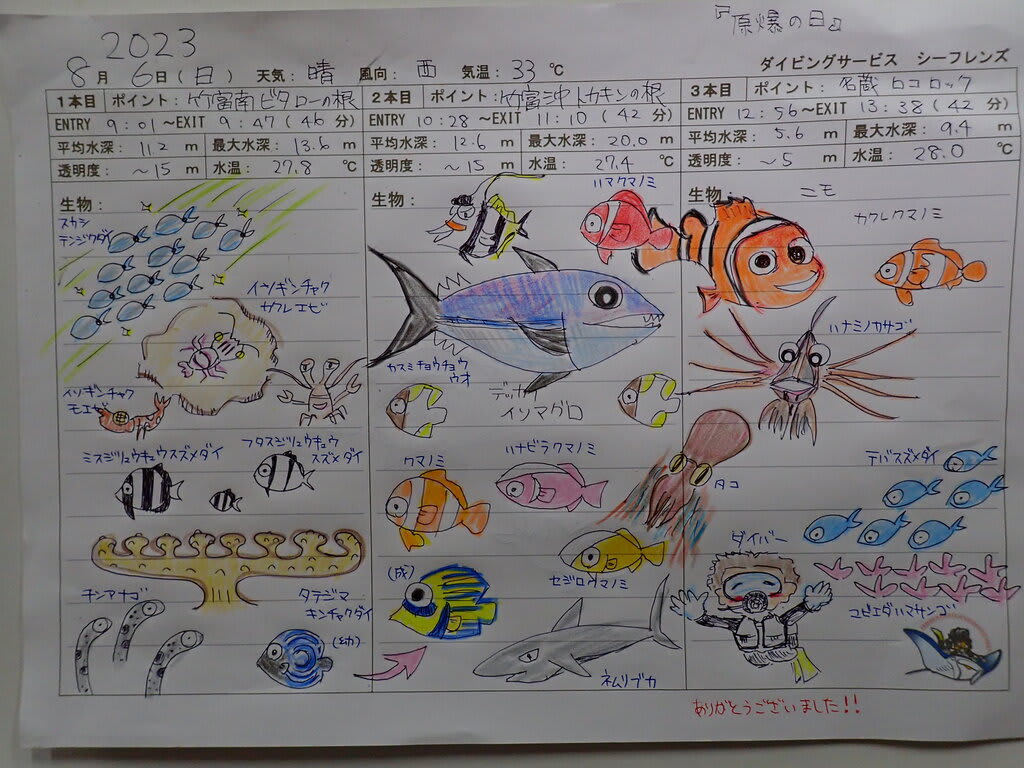 『原爆の日』
2023
8月 6日(日) 天気:晴 風向:西 気温:33℃
ダイビングサービス シーフレンズ
1本目 ポイント:竹富南ビタローの根
ENTRY 9:01~EXIT 9:47(46分)
平均水深: 11.2 m 最大水深: 13.6 m
透明度: ~15 m 水温: 27.8 ℃
生物:
スカシ
テンジクダイ
イソギンチャク
カクレエビ
イソギンチャク
モエビ
ミスジリュウキュウスズメダイ
フタスジリュウキュウ
スズメダイ
チンアナゴ
タテジマ
キンチャクダイ
(幼)
2本目 ポイント:竹富沖トカキンの根
ENTRY 10:28~EXIT 11:10(42分)
平均水深: 12.6 m 最大水深: 20.0 m
透明度: ~15 m 水温: 27.4 ℃
生物:
ハマクマノミ
カスミチョウチョウ
ウオ
デッカイ
イソマグロ
クマノミ
ハナビラクマノミ
セジロクマノミ
(成)
ネムリブカ
3本目 ポイント:名蔵 ロコロック
ENTRY 12:56~EXIT 13:38(42分)
平均水深: 5.6 m 最大水深: 9.4 m
透明度: ~5 m 水温: 28.0 ℃
生物:
ニモ
カクレクマノミ
ハナミノカサゴ
タコ
デバスズメダイ
ダイバー
コビエダハマサンゴ
ありがとうございました!!